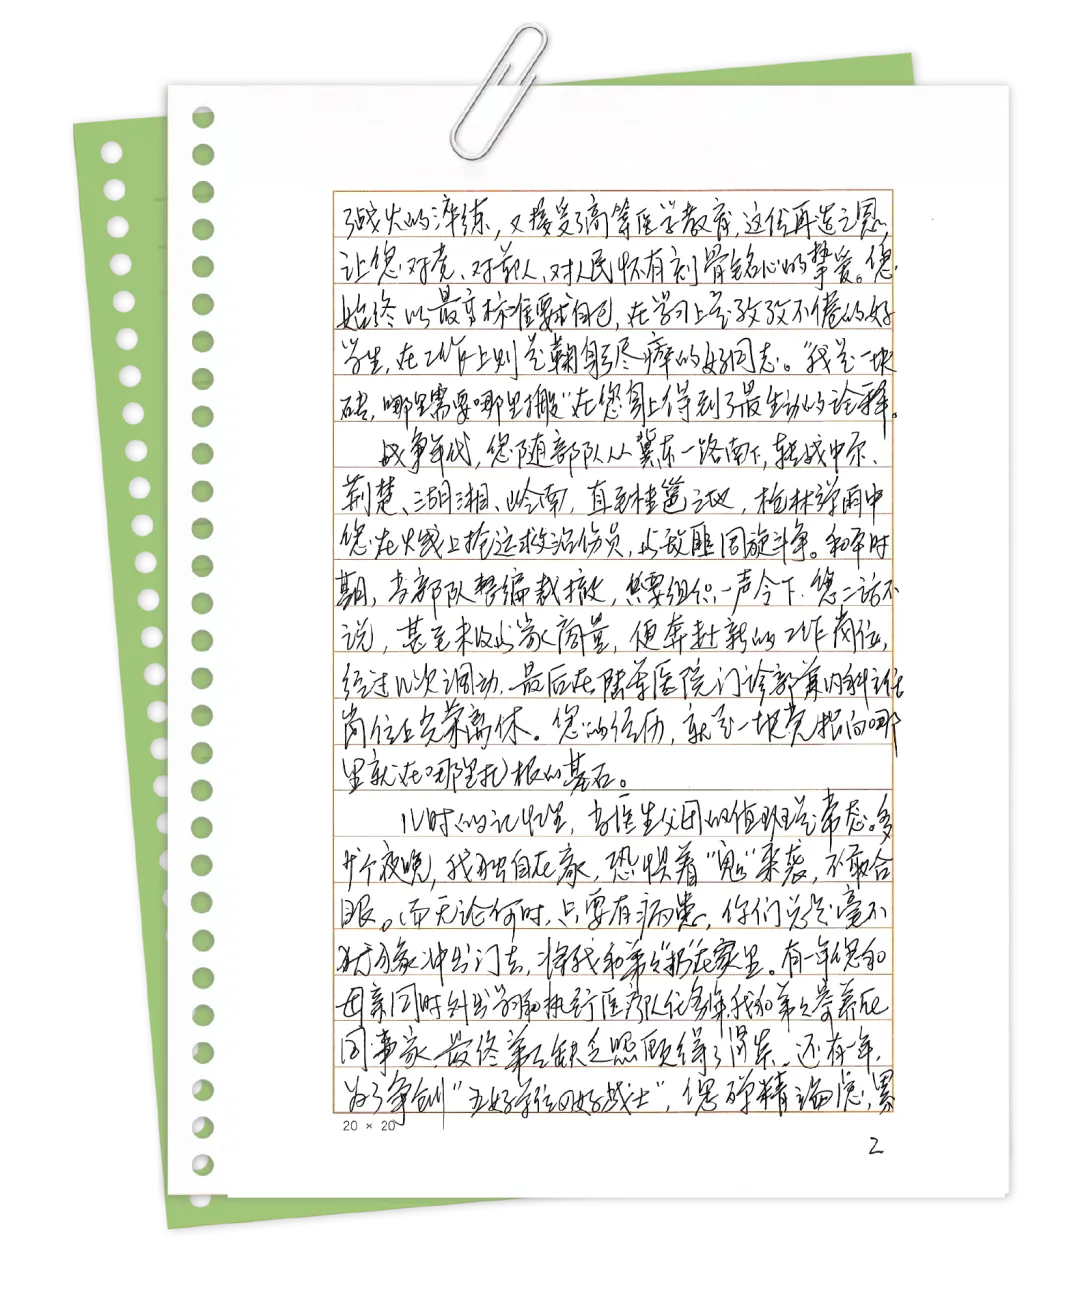 了战火的淬练，又接受了高等医学教育，这份再造之恩，
让您对党、对军人、对人民怀有刻骨铭心的挚爱。您
始终以最高标准要求自己，在学习上是孜孜不倦的好
学生，在工作上则是鞠躬尽瘁的好同志。“我是一块
砖，哪里需要哪里搬”在您身上得到了最生动的诠释。
战争年代，您随部队从冀东一路南下，转战中原、
荆楚、湖湘、岭南，直至桂邕之地，枪林弹雨中
您在火线上抢运救治伤员，与敌匪周旋斗争。和平时
期，当部队整编裁撤，只要组织一声令下，您二话不
说，甚至未及与家人商量，便奔赴新的工作岗位，
经过几次调动，最后在陆军医院门诊部兼内科主任
岗位上光荣离休。您的经历，就是一块党指向哪
里就在哪里扎根的基石。
儿时的记忆里，当医生父母的值班是常态。多
少个夜晚，我独自在家，恐惧着“鬼”来袭，不敢合
眼。而无论何时，只要有病患，你们总是毫不
犹豫冲出门去，将我和弟弟“扔”在家里。有一年您和
母亲同时外出学习和执行医疗队任务，我和弟弟寄养在
同事家，最终弟弟缺乏照顾得了肾炎。还有一年，
为了争创“五好单位四好战士”，您殚精竭虑，累
20 × 20
2